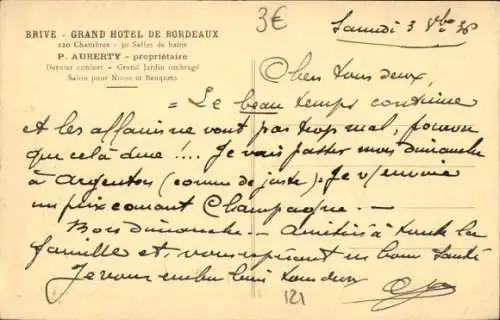 BRIVE - GRAND HOTEL DE BORDEAUX
120 Chambres - 30 Salles de bains
P. AUBERTY - propriétaire
Dernier confort - Grand Jardin ombragé
Salon pour Noces et Banquets
3€
Samedi 3
Chers tous deux,
= Le beau temps continue
et les affaires ne vont pas trop mal, pourvu
que celà dure !.... Je vais passer mon dimanche
à Argenton (comme de juste). Je v/ envoie
un prix courant Champagne. -
Bon dimanche - Amitiés à toute la
famille et, vous espérant en bonne santé
Je vous embrasse tous deux
121